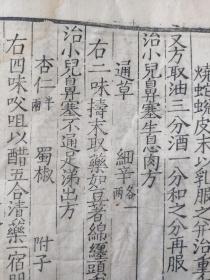 燒蛇蛻皮末以乳服之并治重
又方取油三分酒一分和之分再服
治小兒鼻塞生息肉方
通草 細辛各一兩
右二味擣末取藥如豆著綿纏頭
治小兒鼻塞不通涕出方
杏仁半兩 蜀椒 附子
右四味㕮咀以醋五合漬藥一宿明